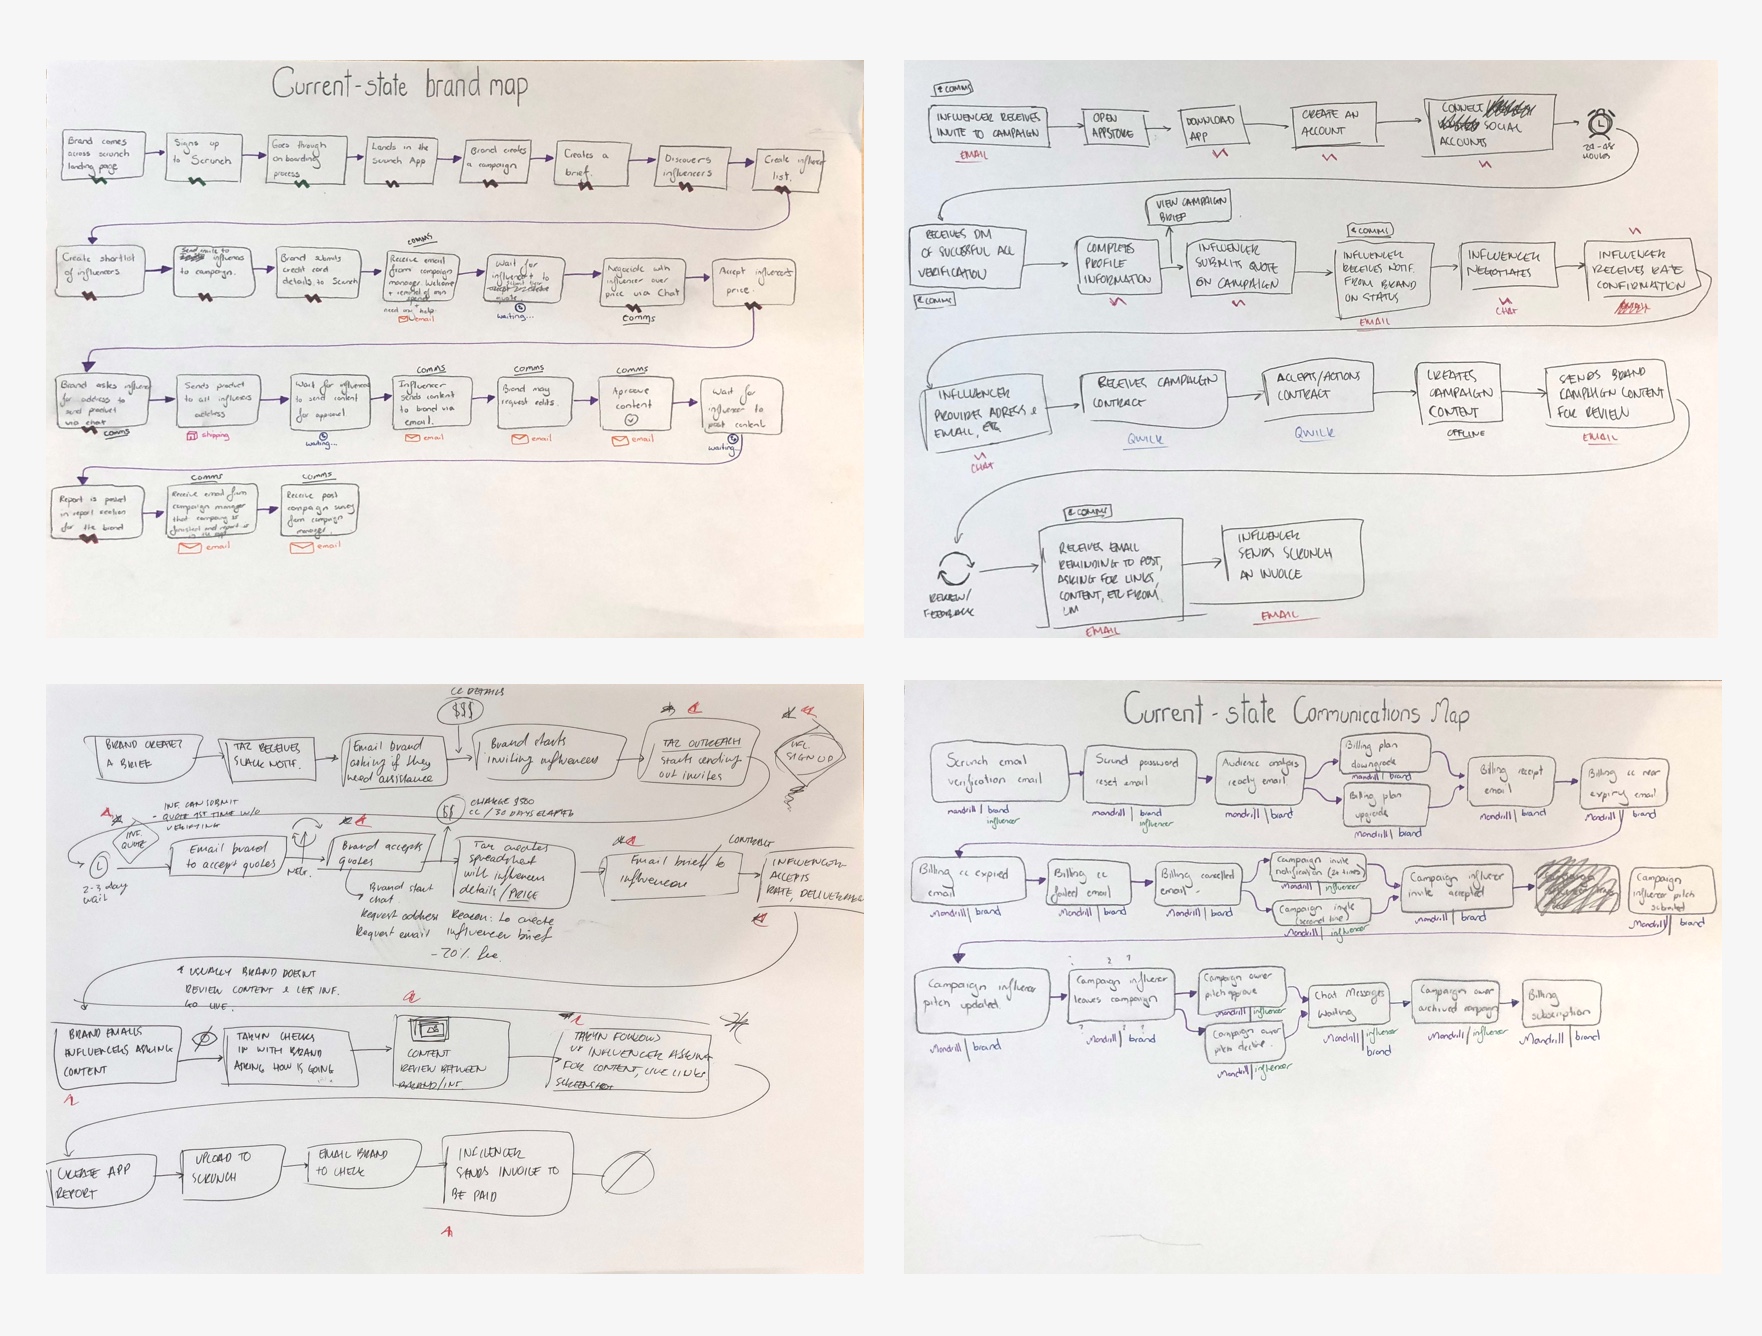 Current-state brand map
Brand comes
across scrunch
landing page
Signs up
to Scrunch
Goes through
onboarding
process
Lands in the
Scrunch App
Brand creates
a campaign
Creates a
brief.
Discovers
influencers
Create influencer
list.
Create shortlist
of influencers
Send invite to
influencers
to campaign.
Brand submits
credit card
details to Scrunch
comms
Receive email
from campaign
manager. Welcome
+ reminder of
spend +
need any help
email
Wait for
influencer to
quote
waiting...
Negociate with
influencer over
price via Chat
comms
Accept influencers
price.
Brand asks influencer
for address to
send product
via chat
comms
Sends product
to all influencers
address
shipping
Wait for influencer
to send content
for approval
waiting...
comms
Influencer
sends content
to brand via
email.
email
comms
Brand may
request edits.
email
comms
Approve
content
email
Wait for
influencer to
post content
waiting...
Report is posted
in report section
for the brand
comms
Receive email from
campaign manager
that campaign is
finished and report is
in the app
email
comms
Receive post
campaign survey
from campaign
manager.
email
& COMMS
INFLUENCER RECEIVES
INVITE TO CAMPAIGN
EMAIL
OPEN
APPSTORE
DOWNLOAD
APP
CREATE AN
ACCOUNT
CONNECT
SOCIAL
ACCOUNTS
24-48
HOURS
RECEIVES DM
OF SUCCESSFUL ACC
VERIFICATION
& COMMS
COMPLETE
PROFILE
INFORMATION
VIEW CAMPAIGN
BRIEF
INFLUENCER
SUBMITS QUOTE
ON CAMPAIGN
& COMMS
INFLUENCER
RECEIVES NOTIF.
FROM BRAND
ON STATUS
EMAIL
INFLUENCER
NEGOTIATES
CHAT
INFLUENCER
RECEIVES RATE
CONFIRMATION
INFLUENCER
PROVIDES ADRESS &
EMAIL, ETC
CHAT
RECEIVES CAMPAIGN
CONTRACT
QWILR
ACCEPTS/ACTIONS
CONTRACT
QWILR
CREATES
CAMPAIGN
CONTENT
OFFLINE
SENDS BRAND
CAMPAIGN CONTENT
FOR REVIEW
EMAIL
REVIEW/
FEEDBACK
& COMMS
RECEIVES EMAIL
REMINDING TO POST,
ASKING FOR LINKS,
CONTENT, ETC FROM
CM
EMAIL
INFLUENCER
SENDS SCRUNCH
AN INVOICE
EMAIL
CC DETAILS
$$$
BRAND CREATES
A BRIEF
TAZ RECEIVES
SLACK NOTIF.
Email brand
asking if they
need assistance
Brand starts
inviting influencers
TAZ OUTREACH
starts sending
out invites
INFL.
SIGN UP
INF. CAN SUBMIT
QUOTE 1ST TIME W/O
VERIFYING
INF.
QUOTE
2-3 day
wait
Email brand
to accept quotes
NEG.
Brand accepts
quotes
Brand start
chat
Request address
Request email
$$
CHARGE $500
CC / 30 DAYS ELAPSED
Taz creates
spreadsheet
with influencers
details / PRICE
Reason: to create
influencer brief
- 20% fee.
Email brief to
influencers
CONTRACT
INFLUENCER
ACCEPTS
RATE, DELIVERABLES
* USUALLY BRAND DOESNT
REVIEW CONTENT & LET INF.
GO LIVE.
BRAND EMAILS
INFLUENCERS ASKING
CONTENT
TARYN CHECKS
IN WITH BRAND
ASKING HOW IS GOING
CONTENT
REVIEW BETWEEN
BRAND/INF.
TARYN FOLLOWS
UP INFLUENCER ASKING
FOR CONTENT, LIVE LINKS,
SCREENSHOT
CREATE APP
REPORT
UPLOAD TO
SCRUNCH
EMAIL BRAND
TO CHECK
INFLUENCER
SENDS INVOICE TO
BE PAID
Current-state Communications Map
Scrunch email
verification email
mandrill | brand
influencer
Scrund password
reset email
mandrill | brand
influencer
Audience analysis
ready email
mandrill | brand
Billing plan
downgrade
mandrill | brand
Billing plan
upgrade
Mandrill | brand
Billing receipt
email
mandrill | brand
Billing cc near
expiry email
Mandrill | brand
Billing cc expired
email
Mandrill | brand
Billing cc
failed email
Mandrill | brand
Billing cancelled
email
Mandrill | brand
Campaign invite
notification (2x times)
Mandrill | influencer
Campaign invite
(second time)
Mandrill | influencer
Campaign influencer
invite accepted
Mandrill | brand
Campaign
influencer pitch
submitted
Mandrill | brand
Campaign influencer
pitch updated
Mandrill | brand
? ?
Campaign influencer
leaves campaign
Mandrill | brand
Campaign owner
pitch approve
Mandrill | influencer
Campaign owner
pitch decline.
Mandrill | influencer
Chat Messages
Waiting
Mandrill | influencer
brand
Campaign owner
archived campaign
Mandrill / influencer
Billing
subscription
Mandrill | brand